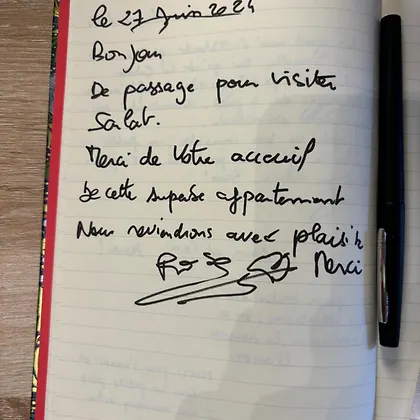 le 27 Juin 2024
Bonjour
De passage pour visiter
Sarlat.
Merci de Votre accueil
de cette superbe appartement
Nous reviendrons avec plaisir
Merci